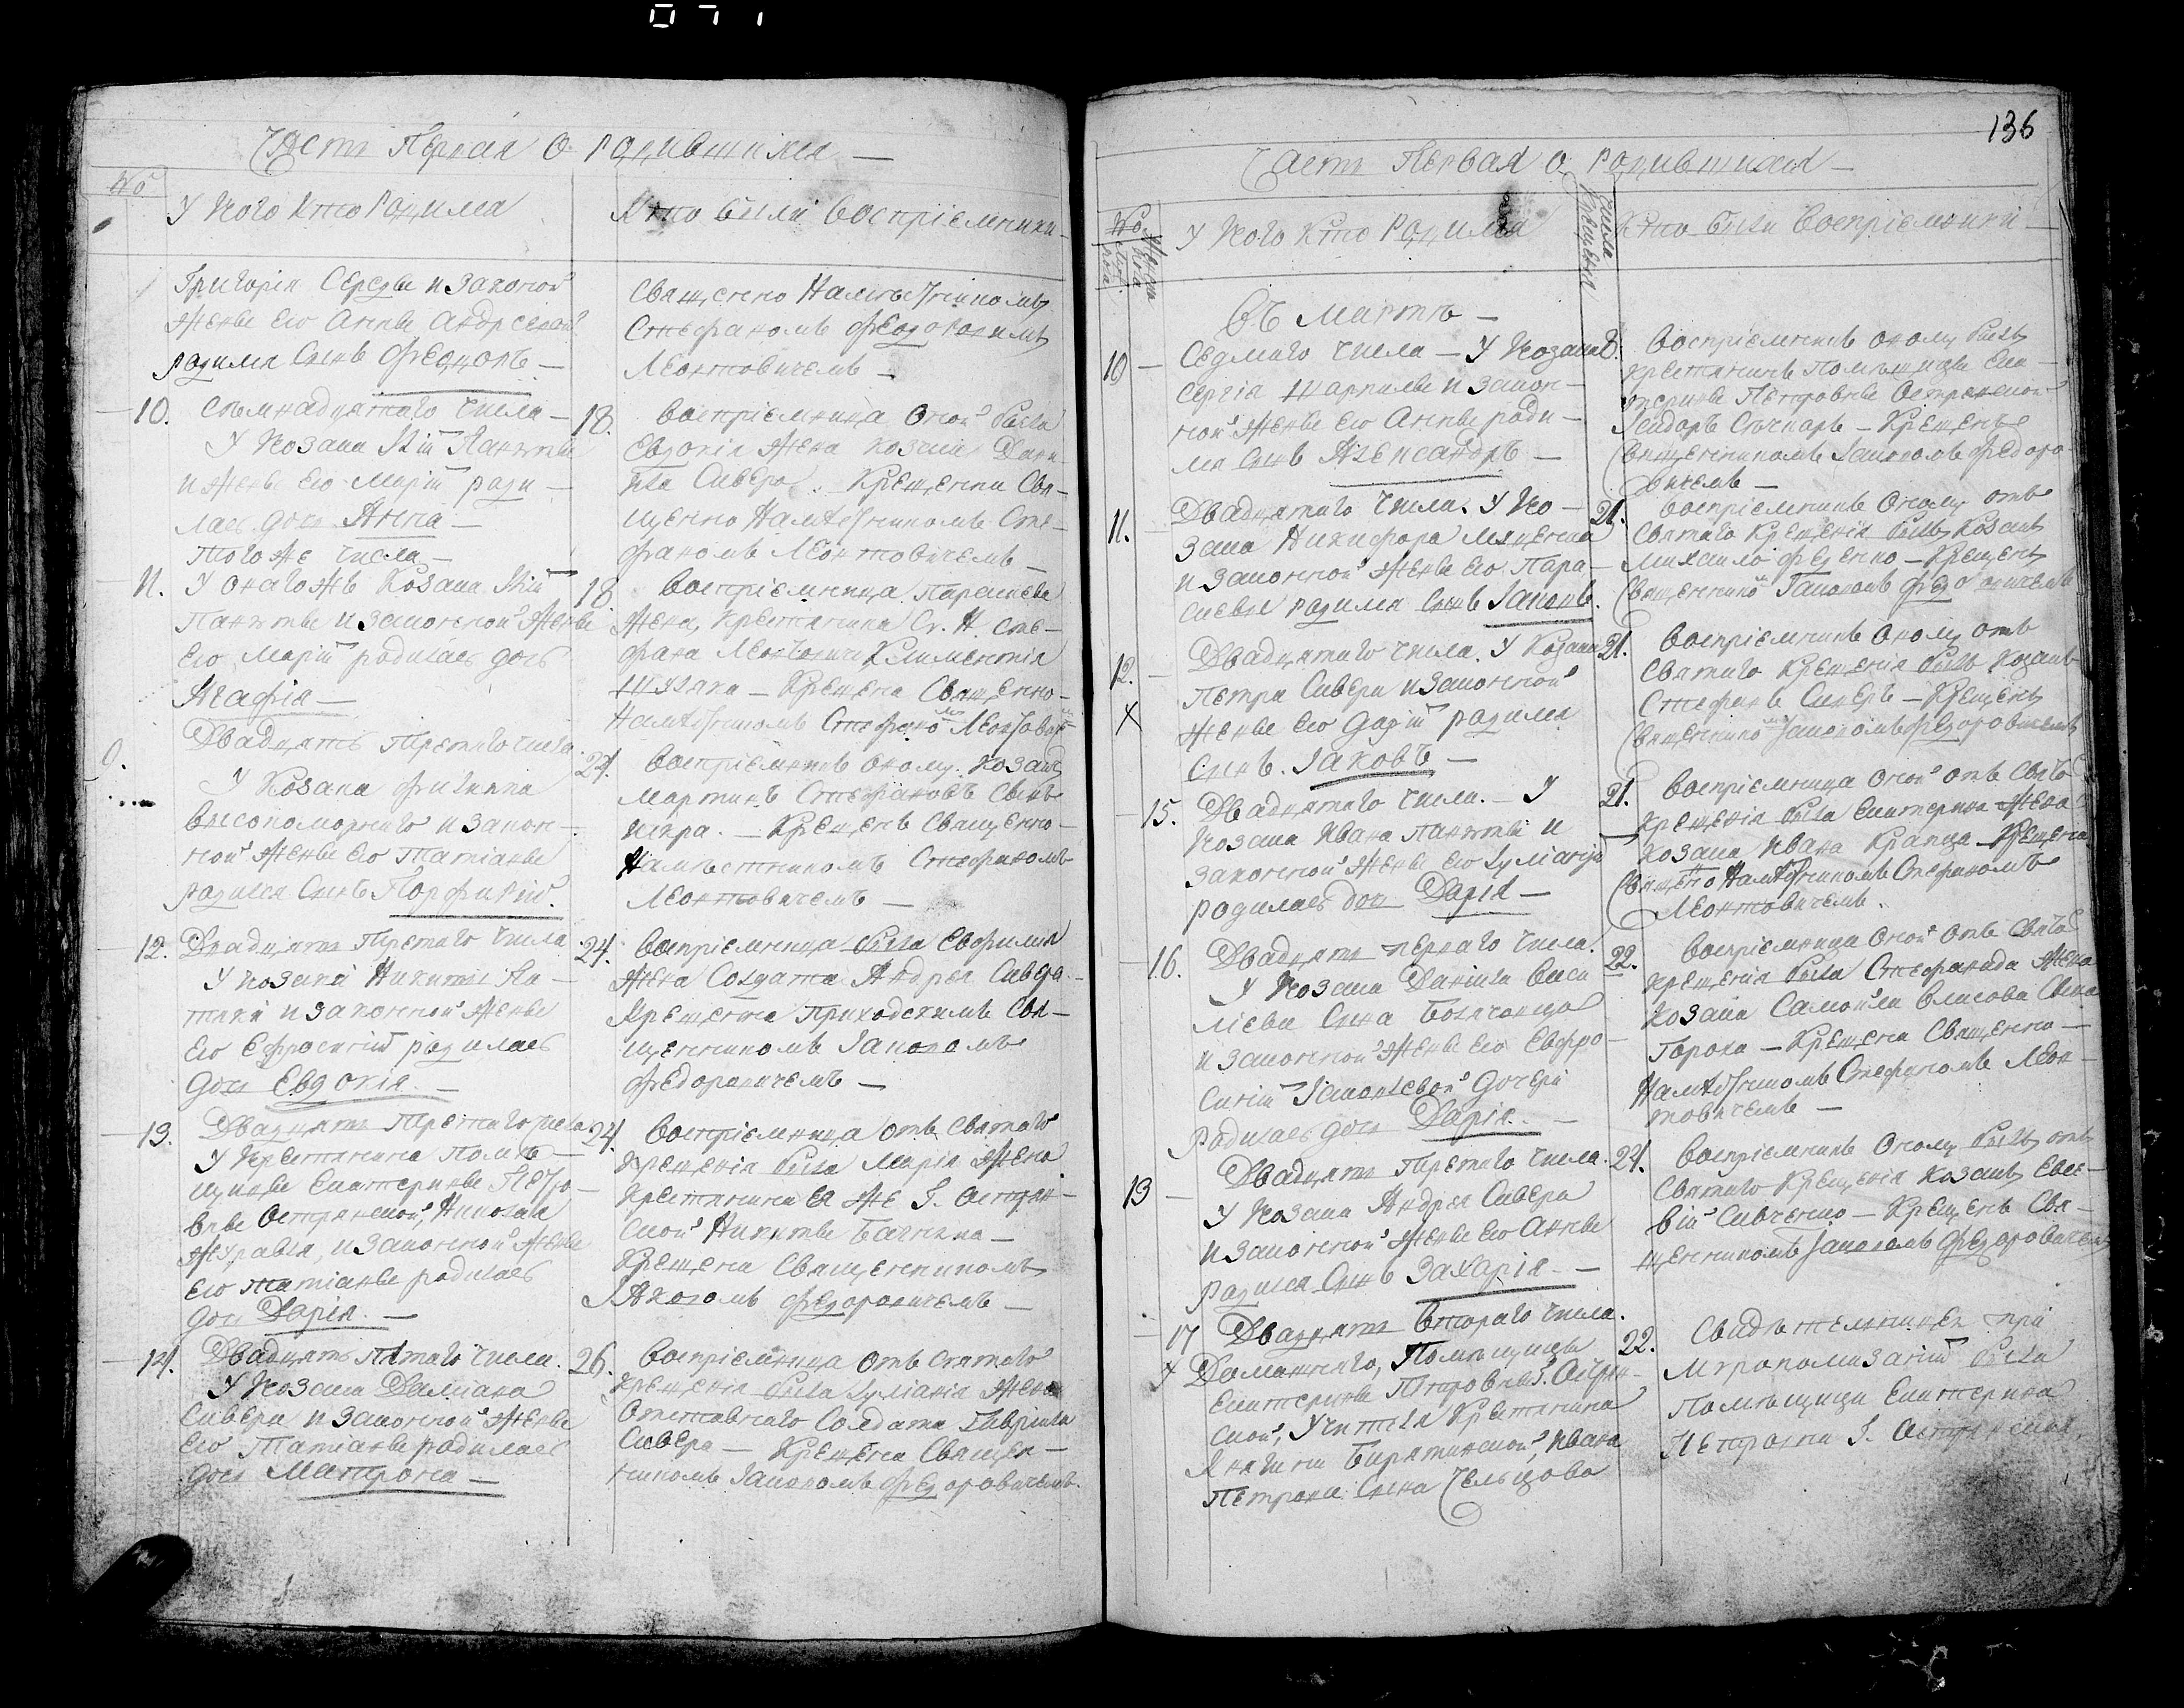 Часть Первая о родившихся —
№
У кого кто родился
Кто были Восприемники —
Григорія Середы и законой
жены его Анны Андреевой
родился Сынъ Феодоръ —
Священно Намѣстникомъ
Стефаномъ Феодоровимъ
Леонтовичемъ —
10. Сѣмнадцятаго числа —
У козака
и жены его Маріи роди —
лась дочь Анна —
Того же числа —
18. Восприемница оной была
Евдокія жена козака Дани
ила Сивера. Крещенна Свя —
щенно Намѣстникомъ Сте —
фаномъ Леонтовичемъ —
11. У онагожъ козака
и законной жены
его Маріи родилась дочь
Агафія —
18 Восприемница Параскева
жена, крестянина Сте —
фана Климентія
Крещена Священно —
Намѣстникомъ Стефаномъ
0. Двадцять третяго числа
У козака Филиппа
Высокоморнаго и закон —
ной жены его Татіаны
родился Сынъ Порфирій.
24. Восприемникъ оному козакъ
Мартинъ Стефановъ Сынъ
Крещенъ Священно —
Намѣстникомъ Стефаномъ
Леонтовичемъ —
12. Двадцять третяго числа
У козака Никиты Ла —
и законной жены
его Ефросиніи родилась
дочь Евдокія. —
24. Восприемница была Евфимія
жена Солдата Андрея Сивера.
Крещенна Приходскимъ Свя —
щенникомъ Іаковомъ
Федоровичемъ —
13. Двадцять третяго числа
У крестянина Помѣ —
щицы Екатерины Петро —
вны Острянской, Николая
Журавля, и законной жены
его Татіаны родилась
дочь Дарія. —
24. Восприемница отъ Святаго
крещенія была Марія жена
крестянина ея же Г. Острян —
ской Никиты —
Крещена Священникомъ
Яковомъ Федоровичемъ —
14. Двадцять пятаго числа.
У козака Даміана
Сивера и законной жены
его Татіаны родилась
дочь Матрона —
26. Восприемница отъ святаго
крещенія была Іуліанія жена
отставнаго Солдата Гавріила
Сивера — Крещена Священ —
никомъ Іаковомъ Федоровичемъ.
136
Часть Первая о родившихся —
№
У кого кто родился
Числа крещенія
Кто были Восприемники —
Въ Мартѣ —
10 — Седмаго числа — У козака
Сергія и закон —
ной жены его Анны роди —
лся сынъ Александръ —
8. Восприемникъ оному былъ
крестянинъ Помѣщицы Ека —
терины Петровны Острянской
Исидоръ — Крещенъ
Священникомъ Іаковомъ Федоро —
вичемъ —
11. — Двадцятаго числа. У ко —
зака Никифора
и законной жены его Пара —
скевы родился сынъ Іаковъ.
21. Восприемникъ оному отъ
Святаго крещенія былъ козакъ
Михаило Феденко — Крещенъ
Священникомъ Іаковомъ Федоровичемъ
12. — Двадцятаго числа. У козака
Петра Сивера и законной
Х жены его Даріи родился
Сынъ. Іаковъ —
21. Восприемникъ оному отъ
Святаго крещенія былъ козакъ
Стефанъ Сиверъ — Крещенъ
Священникомъ Іаковомъ Федоровичемъ
15. Двадцятаго числа. — У
козака Ивана и
законной жены его Іуліаніи
родилась дочь Дарія —
21. Восприемница оной отъ Свято
крещенія была Екатерина жена
козака Ивана Крапца — Крещена
Священо Намѣстникомъ Стефаномъ
Леонтовичемъ.
16. Двадцять перваго числа.
У козака Даніила Васи
ліева Сына
и законной жены его Евфро —
синіи Іаковлевой дочери
родилась дочь Дарія. —
22. Восприемница оной отъ Свято
крещенія была Стефанида жена
козака Самоила Власова Сына
Гороха — Крещена Священно —
Намѣстникомъ Стефаномъ Леон —
товичемъ —
13 — Двадцять третяго числа.
У козака Андрея Сивера
и законной жены его Анны
родился Сынъ Захарія. —
24. Восприемникъ оному былъ отъ
Святаго крещенія козакъ Евсе —
вій Сивченко — Крещенъ Свя —
щенникомъ Іаковомъ Федоровичемъ
17 Двадцять втораго числа.
Х Домашняго, Помѣщицы
Екатерины Петровны Г. Острян —
ской, Учителя крестянина
Княгини Барятинской, Ивана
Петрова Сына Сельцова
22. Свидѣтельницею при
Мѵропомазаніи была
Помѣщица Екатерина
Петровна Г. Острянская.